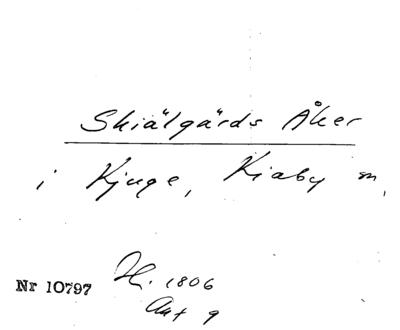 Skiälgärds Åker
i Kjuge, Kiaby m,
Nr 10797
H. 1806
Akt 9